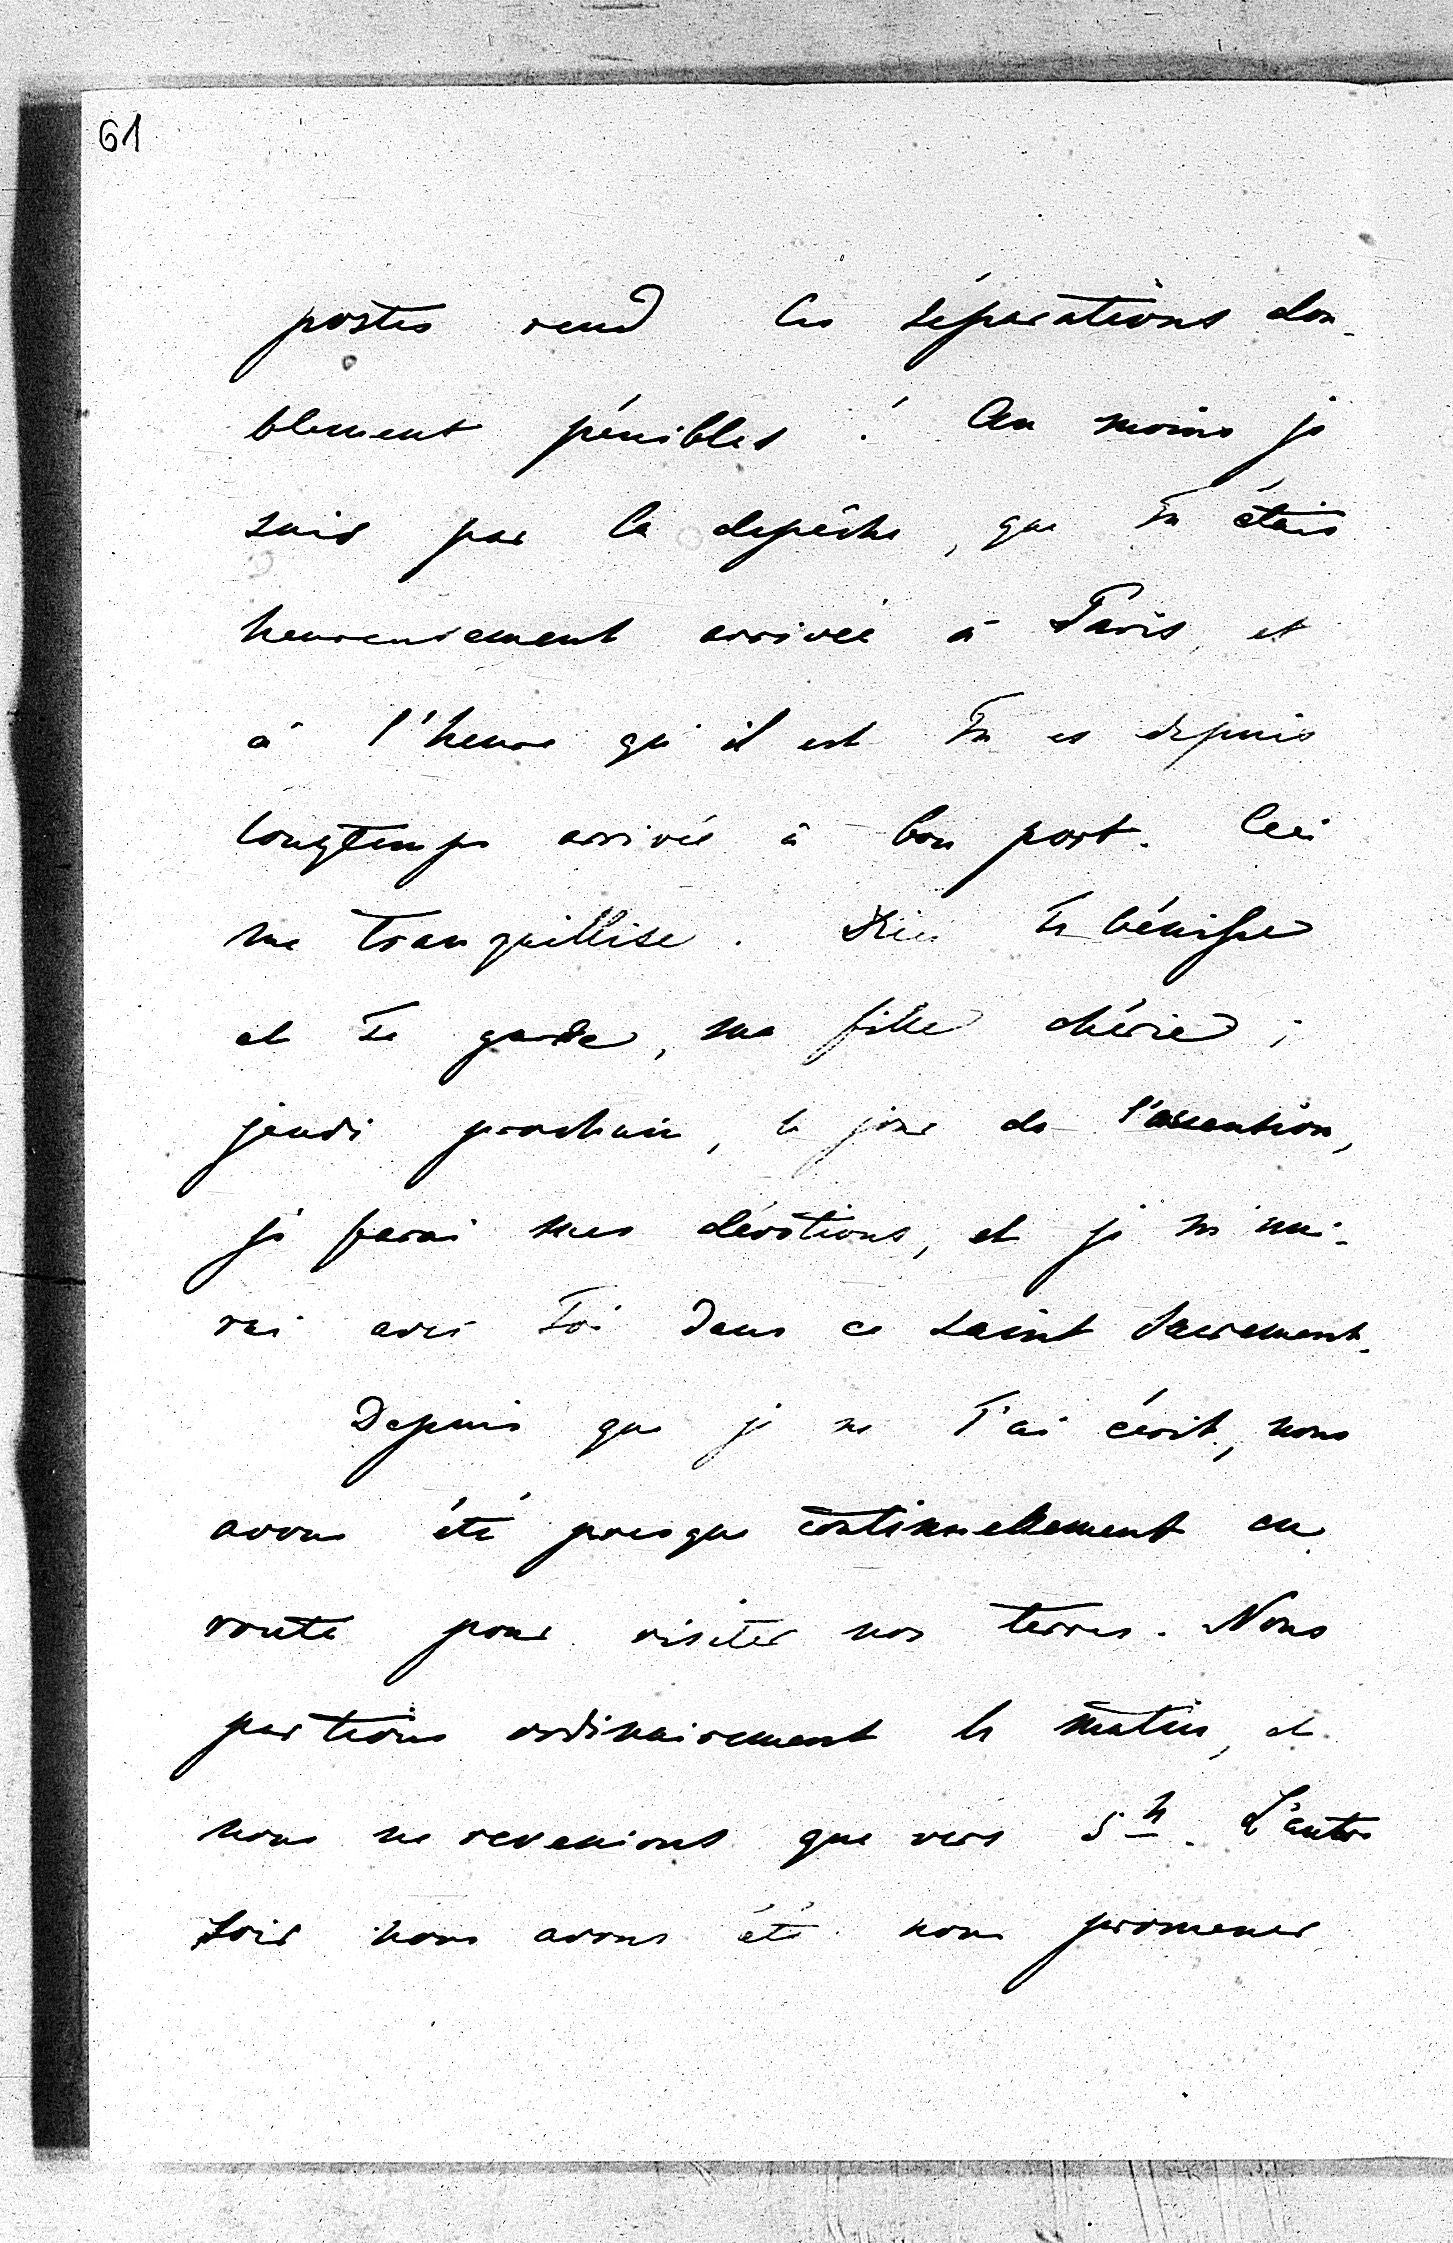 61
postes rend les séparations dou-
blement pénibles ! Au moins je
sais par la depêche, que Tu étais
heureusement arrivée à Paris, et
à l'heure qu'il est Tu es depuis
longtemps arrivée à bon port. Ceci
me tranquillise. Dieu Te bénisse
et Te garde, ma fille chérie ;
jeudi prochain, le jour de l'ascention,
je ferai mes dévotions, et je m'uni-
rai avec Toi dans ce saint Sacrement.
Depuis que je ne T'ai écrit, nous
avons été presque continuellement en
route pour visiter nos terres. Nous
partions ordinairement le matin, et
nous ne revenions que vers 5h. L'autre
soir nous avons été nous promener